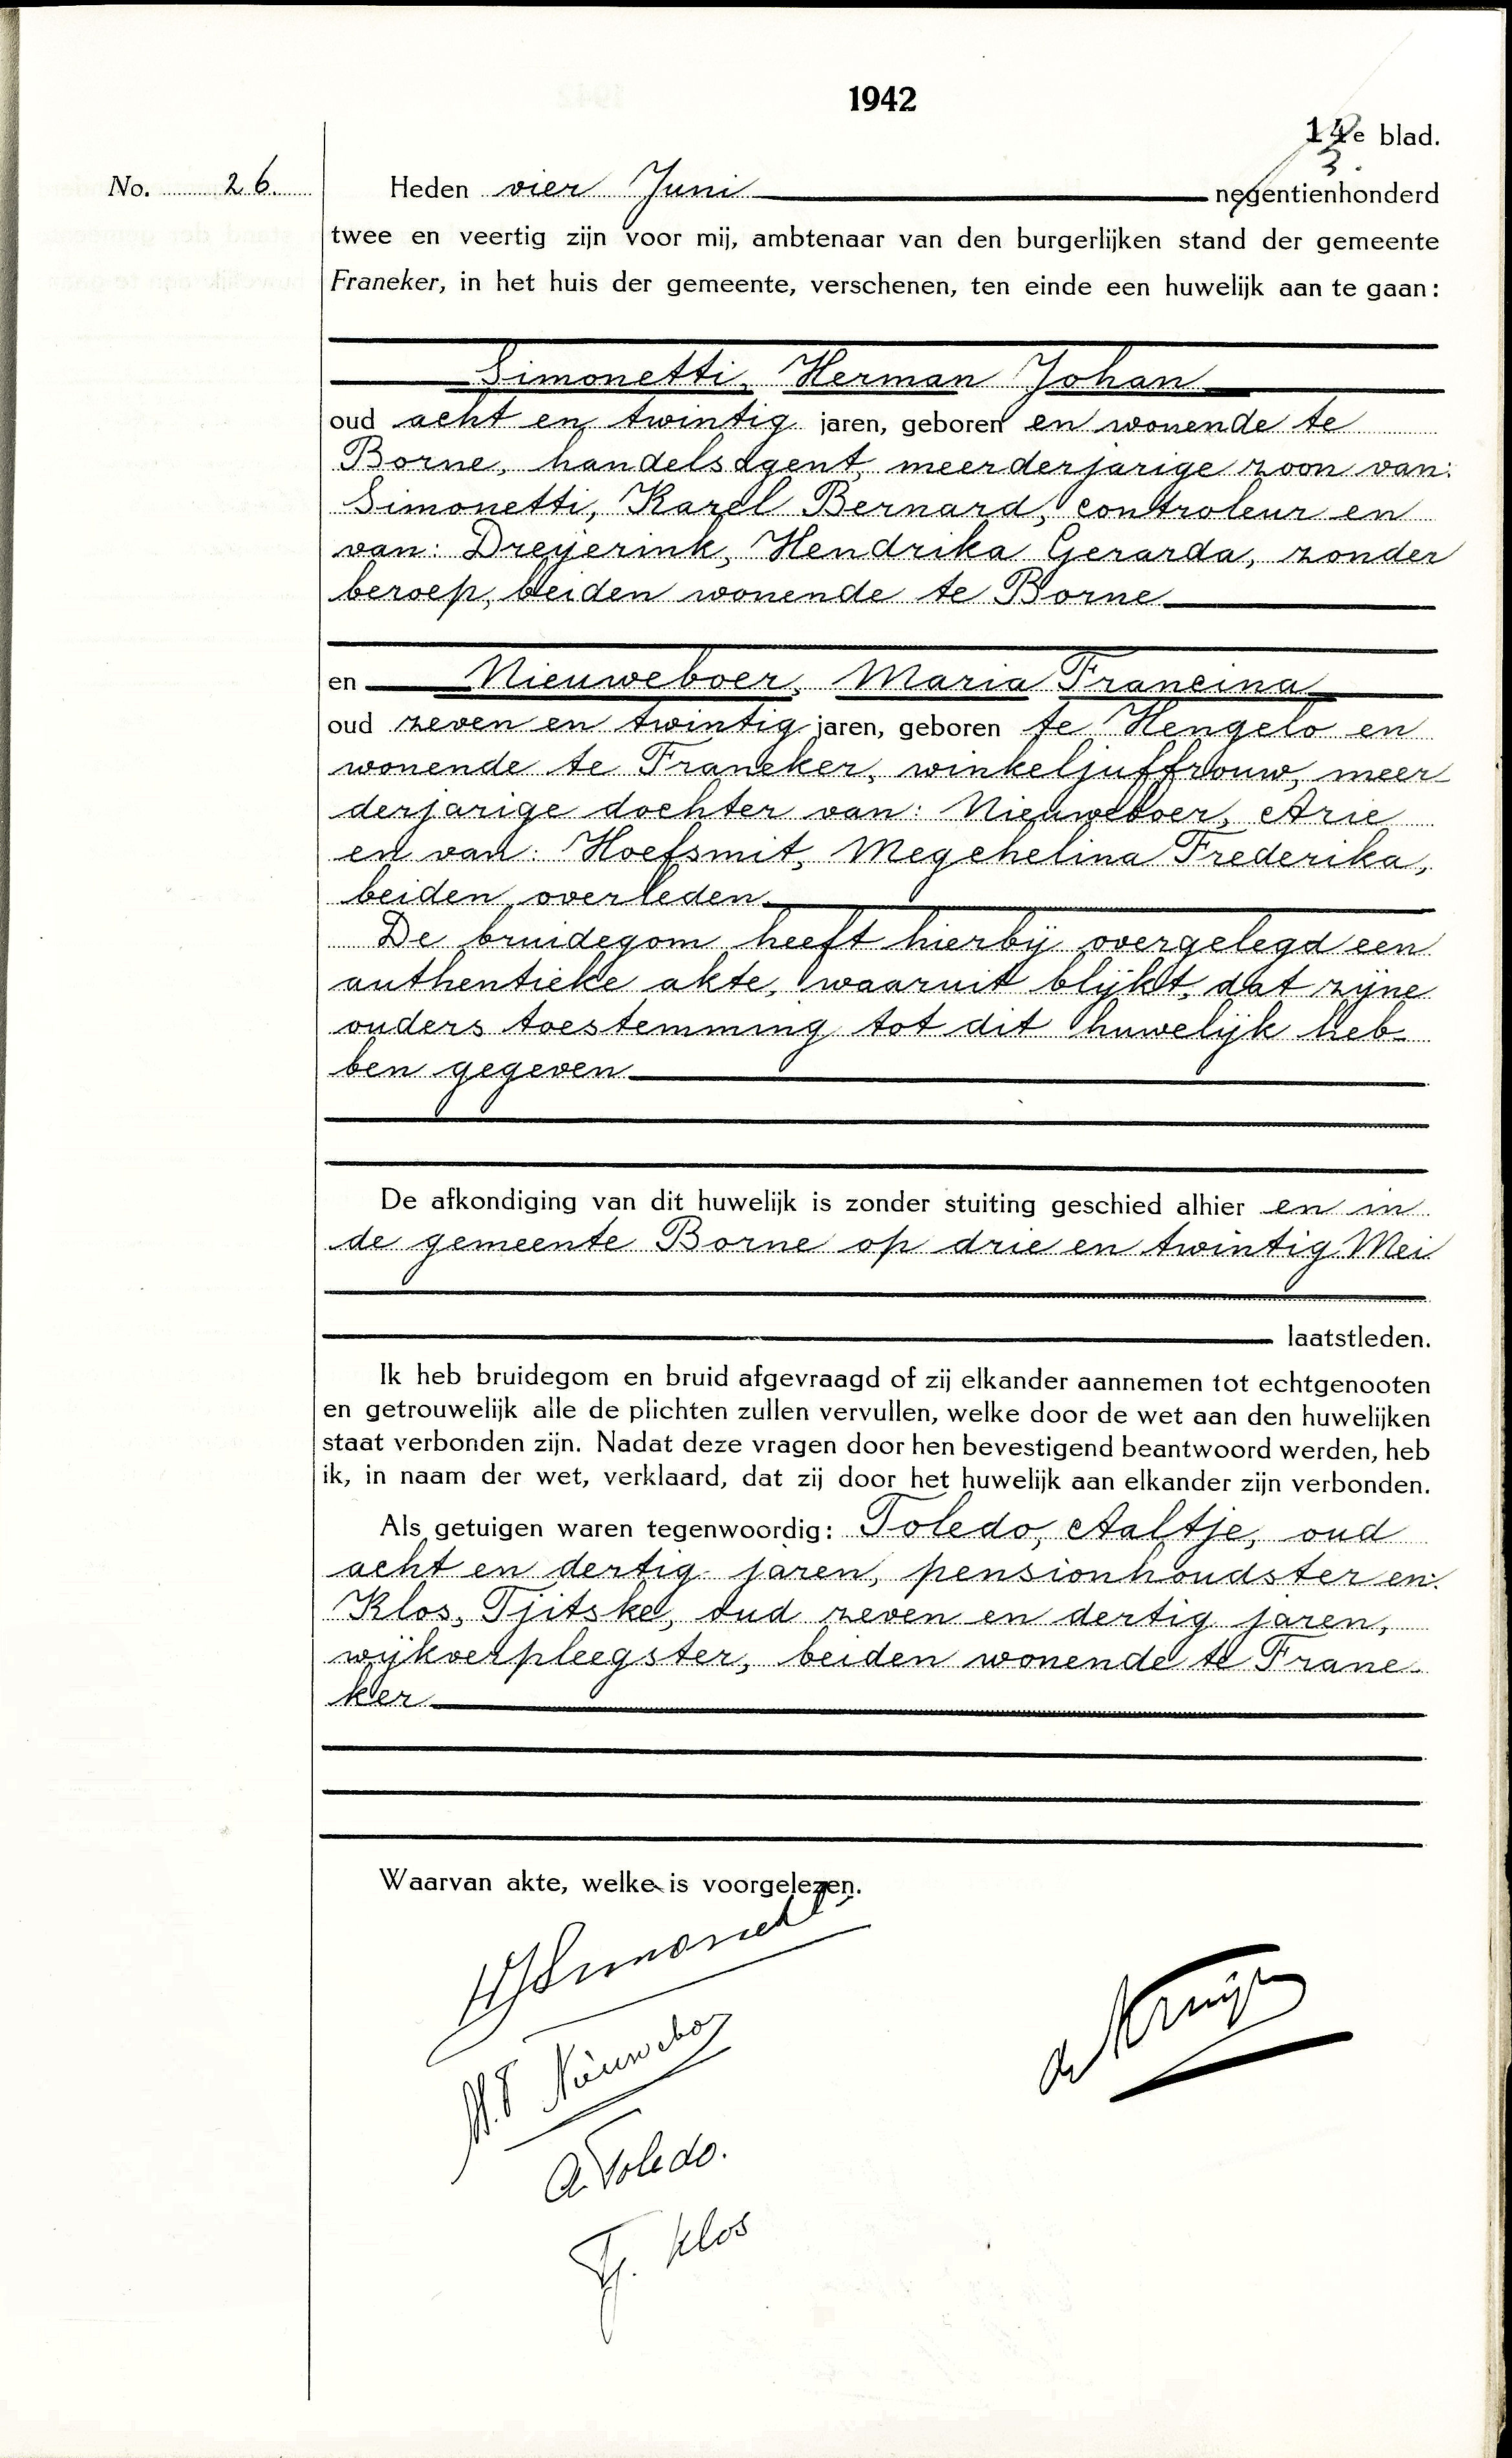 1942
14e blad.
3.
No. 26.
Heden vier Juni negentienhonderd
twee en veertig zijn voor mij, ambtenaar van den burgerlijken stand der gemeente
Franeker, in het huis der gemeente, verschenen, ten einde een huwelijk aan te gaan:
Simonetti, Herman Johan
oud acht en twintig jaren, geboren en wonende te
Borne, handelsagent, meerderjarige zoon van:
Simonetti, Karel Bernard, controleur en
van: Dreyerink, Hendrika Gerarda, zonder
beroep, beiden wonende te Borne
en Nieuweboer, Maria Francina
oud zeven en twintig jaren, geboren te Hengelo en
wonende te Franeker, winkeljuffrouw, meer-
derjarige dochter van: Nieuweboer, Arie
en van: Hoefsmit, Megchelina Frederika,
beiden overleden.
De bruidegom heeft hierbij overgelegd een
authentieke akte, waaruit blijkt, dat zijne
ouders toestemming tot dit huwelijk heb-
ben gegeven
De afkondiging van dit huwelijk is zonder stuiting geschied alhier en in
de gemeente Borne op drie en twintig Mei
laatstleden.
Ik heb bruidegom en bruid afgevraagd of zij elkander aannemen tot echtgenooten
en getrouwelijk alle de plichten zullen vervullen, welke door de wet aan den huwelijken
staat verbonden zijn. Nadat deze vragen door hen bevestigend beantwoord werden, heb
ik, in naam der wet, verklaard, dat zij door het huwelijk aan elkander zijn verbonden.
Als getuigen waren tegenwoordig: Toledo, Aaltje, oud
acht en dertig jaren, pensionhoudster en:
Klos, Tjitske, oud zeven en dertig jaren,
wijkverpleegster, beiden wonende te Frane-
ker
Waarvan akte, welke is voorgelezen.
HJSimonetti
M.F Nieuweboer
A. Toledo.
Tj. Klos